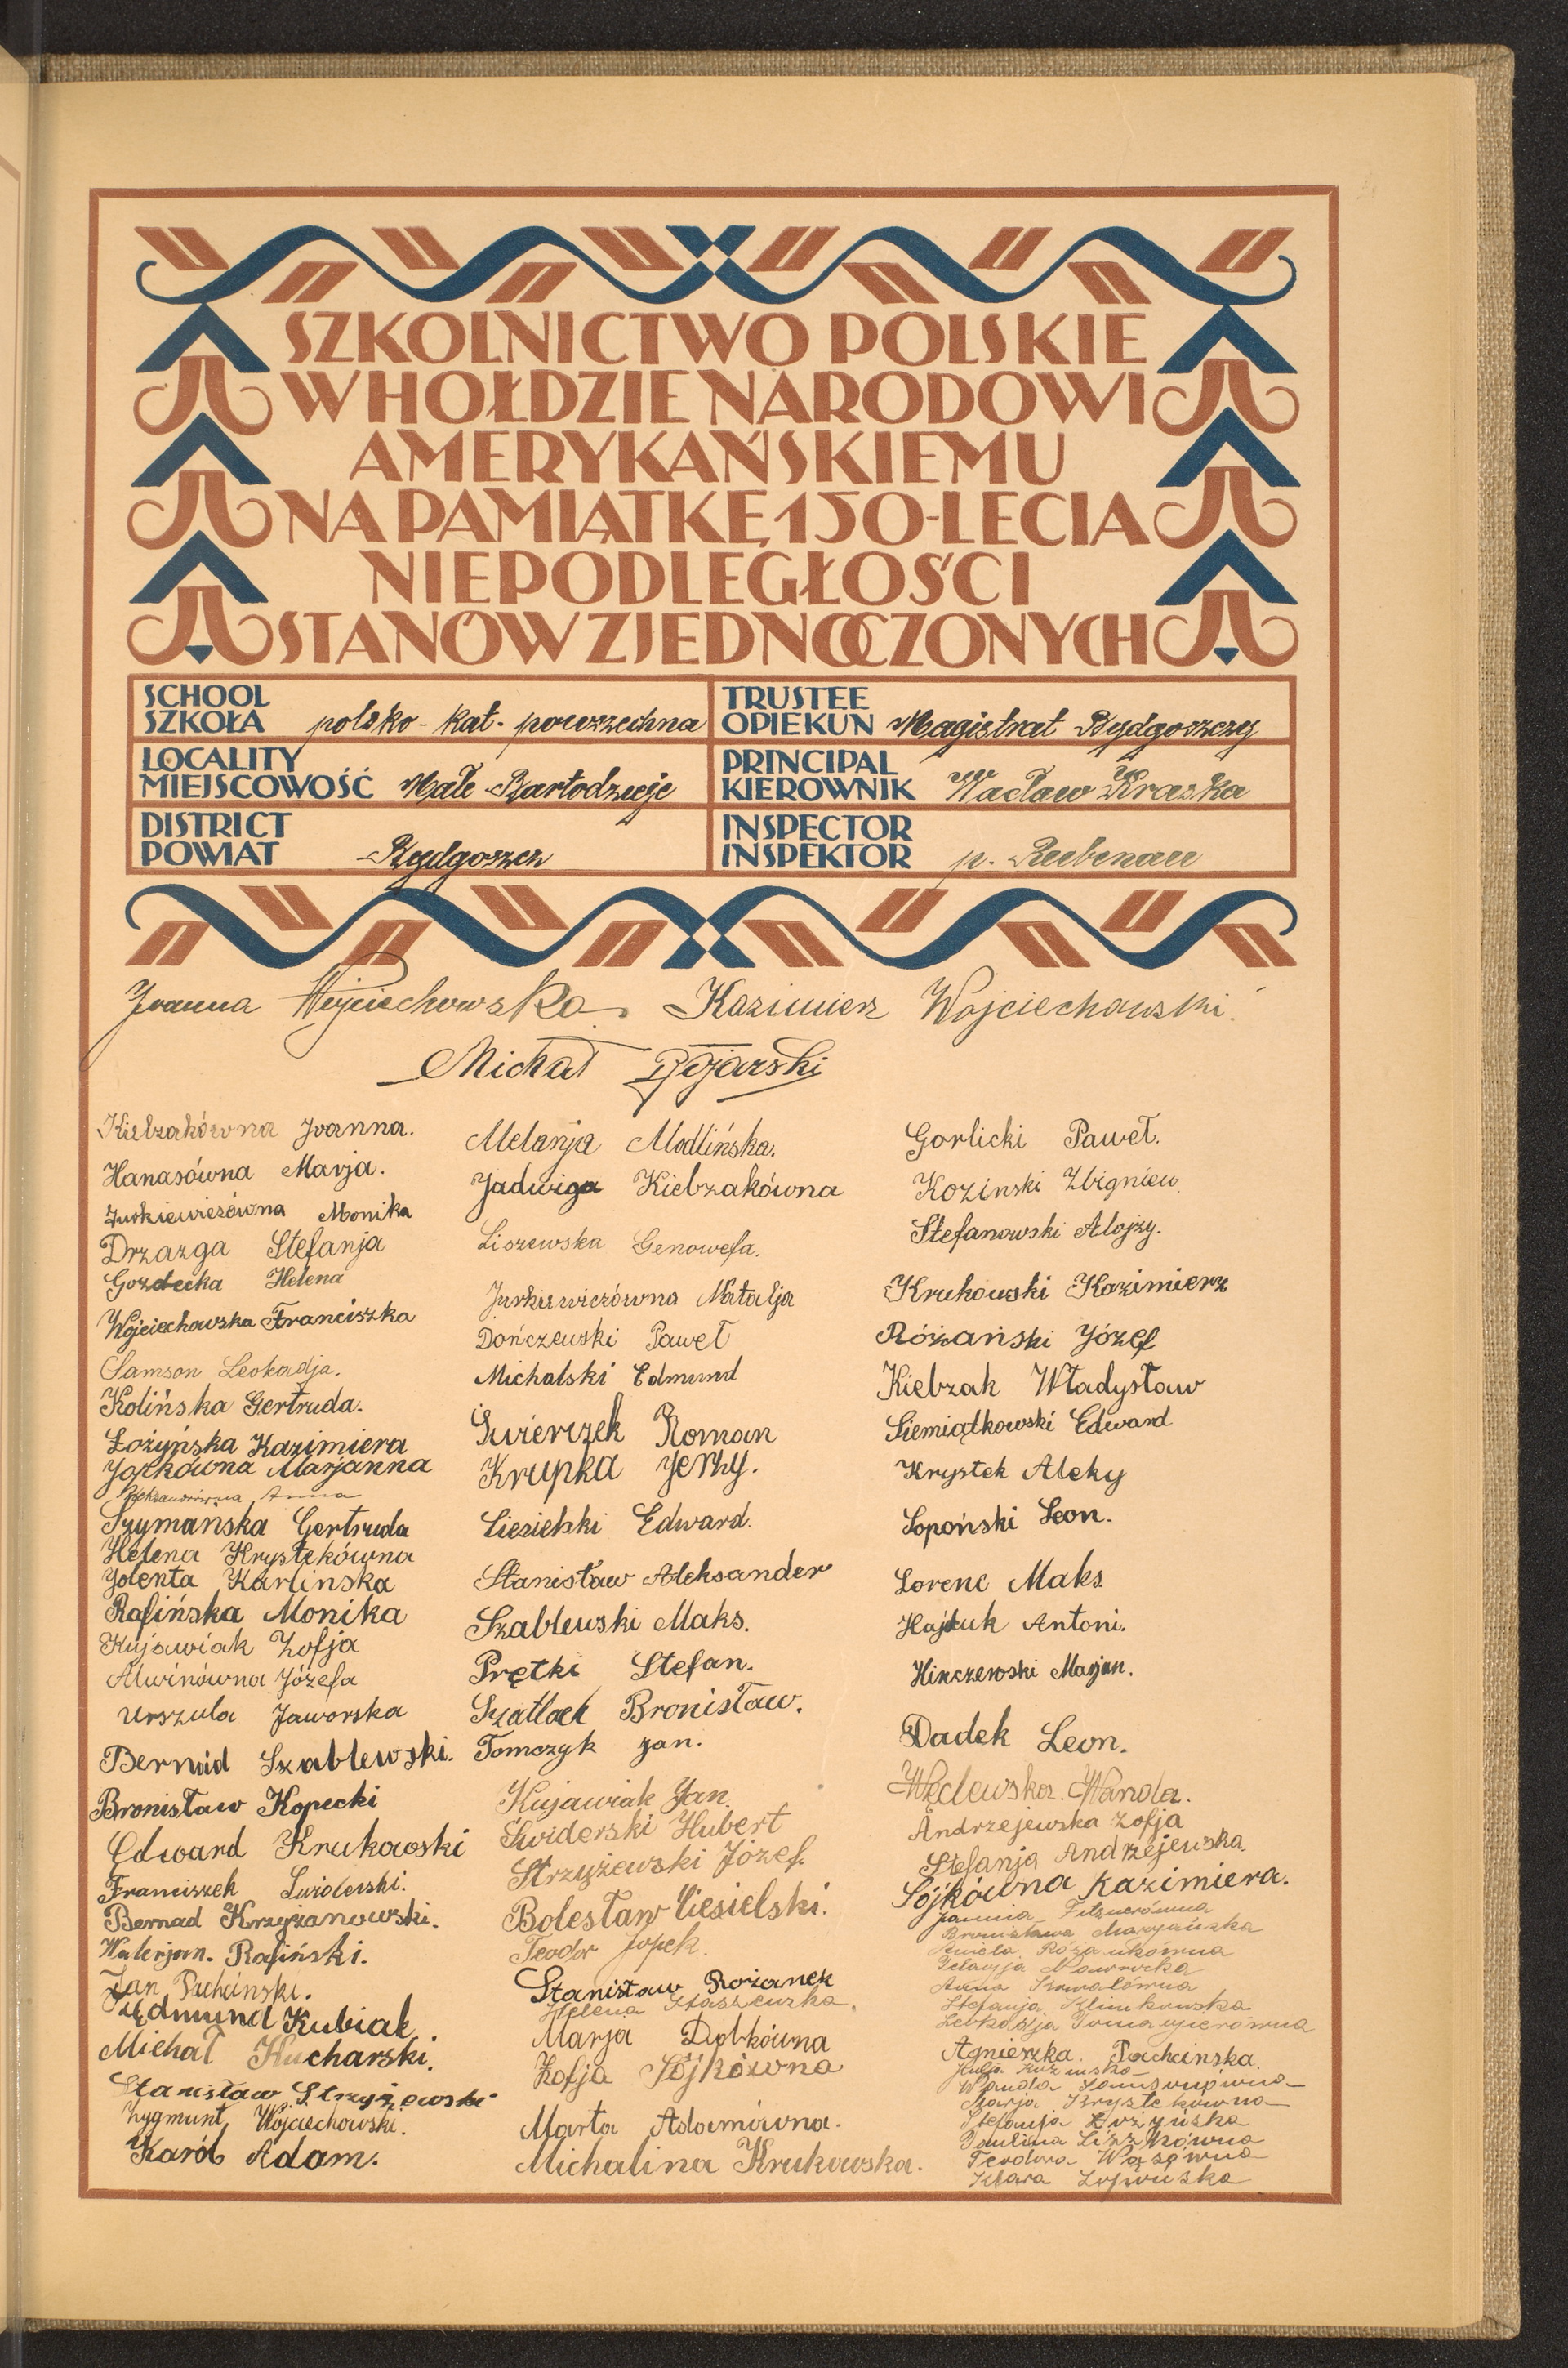 SZKOLNICTWO POLSKIE
W HOŁDZIE NARODOWI
AMERYKAŃSKIEMU
NA PAMIĄTKĘ 150-LECIA
NIEPODLEGŁOŚCI
STANÓW ZJEDNOCZONYCH
SCHOOL
SZKOŁA polsko - kat. powszechna
TRUSTEE
OPIEKUN Magistrat Bydgoszczy
LOCALITY
MIEJSCOWOŚĆ Małe Bartodzieje
PRINCIPAL
KIEROWNIK Wacław Kraska
DISTRICT
POWIAT Bydgoszcz
INSPECTOR
INSPEKTOR p.
Joanna Wojciechowska Kazimierz Wojciechowski.
Michał Bojarski
Kiełzakówna Joanna.
Hanasówna Marja.
Jurkiewiczówna Monika
Drzazga Stefanja
Gozdecka Helena
Wojciechowska Franciszka
Samson Leokadja.
Kolińska Gertruda.
Łożyńska Kazimiera
Jopkówna Marjanna
Anna
Szymańska Gertruda
Helena Krystekówna
Jolenta Karlinska
Rafińska Monika
Kujawiak Zofja
Alwinówna Józefa
Urszula Jaworska
Bernad Szablewski.
Bronisław Kopecki
Edward Krukowski
Franciszek Świderski.
Bernad Krzyżanowski.
Walerjan. Rafiński.
Jan Puchciński.
Edmund Kubiak
Michał Kucharski.
Stanisław Strzyżewski
Zygmunt Wojciechowski.
Karól Adam.
Melanja Modlińska.
Jadwiga Kiebzakówna
Liszewska Genowefa.
Jurkiewiczówna Natalja
Dończewski Paweł
Michalski Edmund
Świerczek Roman
Krupka Jerzy.
Ciesielski Edward.
Stanisław Aleksander
Szablewski Maks.
Prętki Stefan.
Szatloch Bronisław.
Tomczyk Jan.
Kujawiak Jan.
Świderski Hubert
Strzyżewski Józef.
Bolesław Ciesielski.
Teodor Jopek.
Stanisław Rożanek
Helena Staszewska.
Marja Dobkówna
Zofja Sójkówna
Marta Adamówna.
Michalina Krukowska.
Gorlicki Paweł.
Kozinski Zbigniew.
Stefanowski Alojzy.
Krukowski Kazimierz
Różański Józef
Kiebzak Władysław
Siemiątkowski Edward
Krystek Aleky
Łopoński Leon.
Lorenc Maks.
Hajduk Antoni.
Hinczewski Marjan.
Dadek Leon.
Węclewska. Wanda.
Andrzejewska Zofja
Stefanja Andrzejewska.
Sójkówna Kazimiera.
Janina Fitznerówna
Bronisława Maryańska
Aniela Różankówna
Pelagja Nawrocka
Anna Kowalówna
Stefanja Klimkowska
Leokadja
Agnieszka Puchcinska.
Julja
Wanda Samsonówna
Marja Krystekówna
Stefanja Łożyńska
Paulina Liszkówna
Teodora Wąsówna
Klara